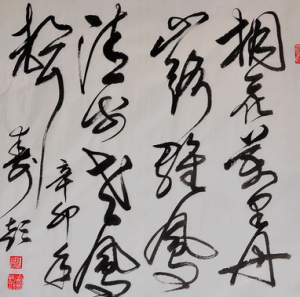 桐花萬里丹
山路雛鳳
清於老鳳
聲
辛卯年
寿